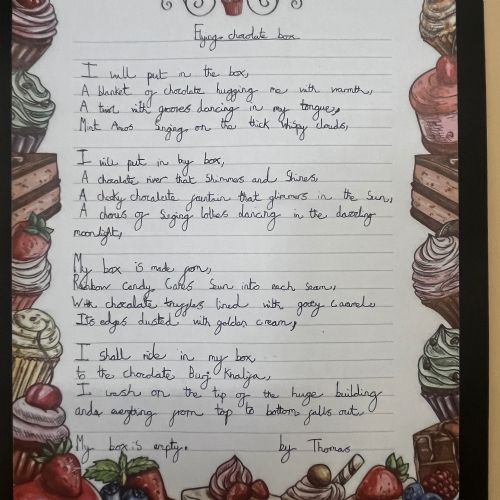 Flying chocolate box
I will put in the box,
A blanket of chocolate hugging me with warmth,
A twirl with gooness dancing in my tongue,
Mint Aeros Singing on the thick whispy clouds,
I will put in my box,
A chocolate river that Shimmers and Shines,
A cheeky chocolate fountain that glimmers in the Sun,
A chorus of Singing lollies dancing in the dazzling
moonlight,
My box is made from,
Rainbow Candy Canes Sewn into each seam,
With chocolate truggles lined with gooey Caramel
Its edges dusted with golden cream,
I shall ride in my box
to the chocolate Burj Khalifa,
I crash on the tip of the huge building
and everything from top to bottom falls out
My box is empty. by Thomas